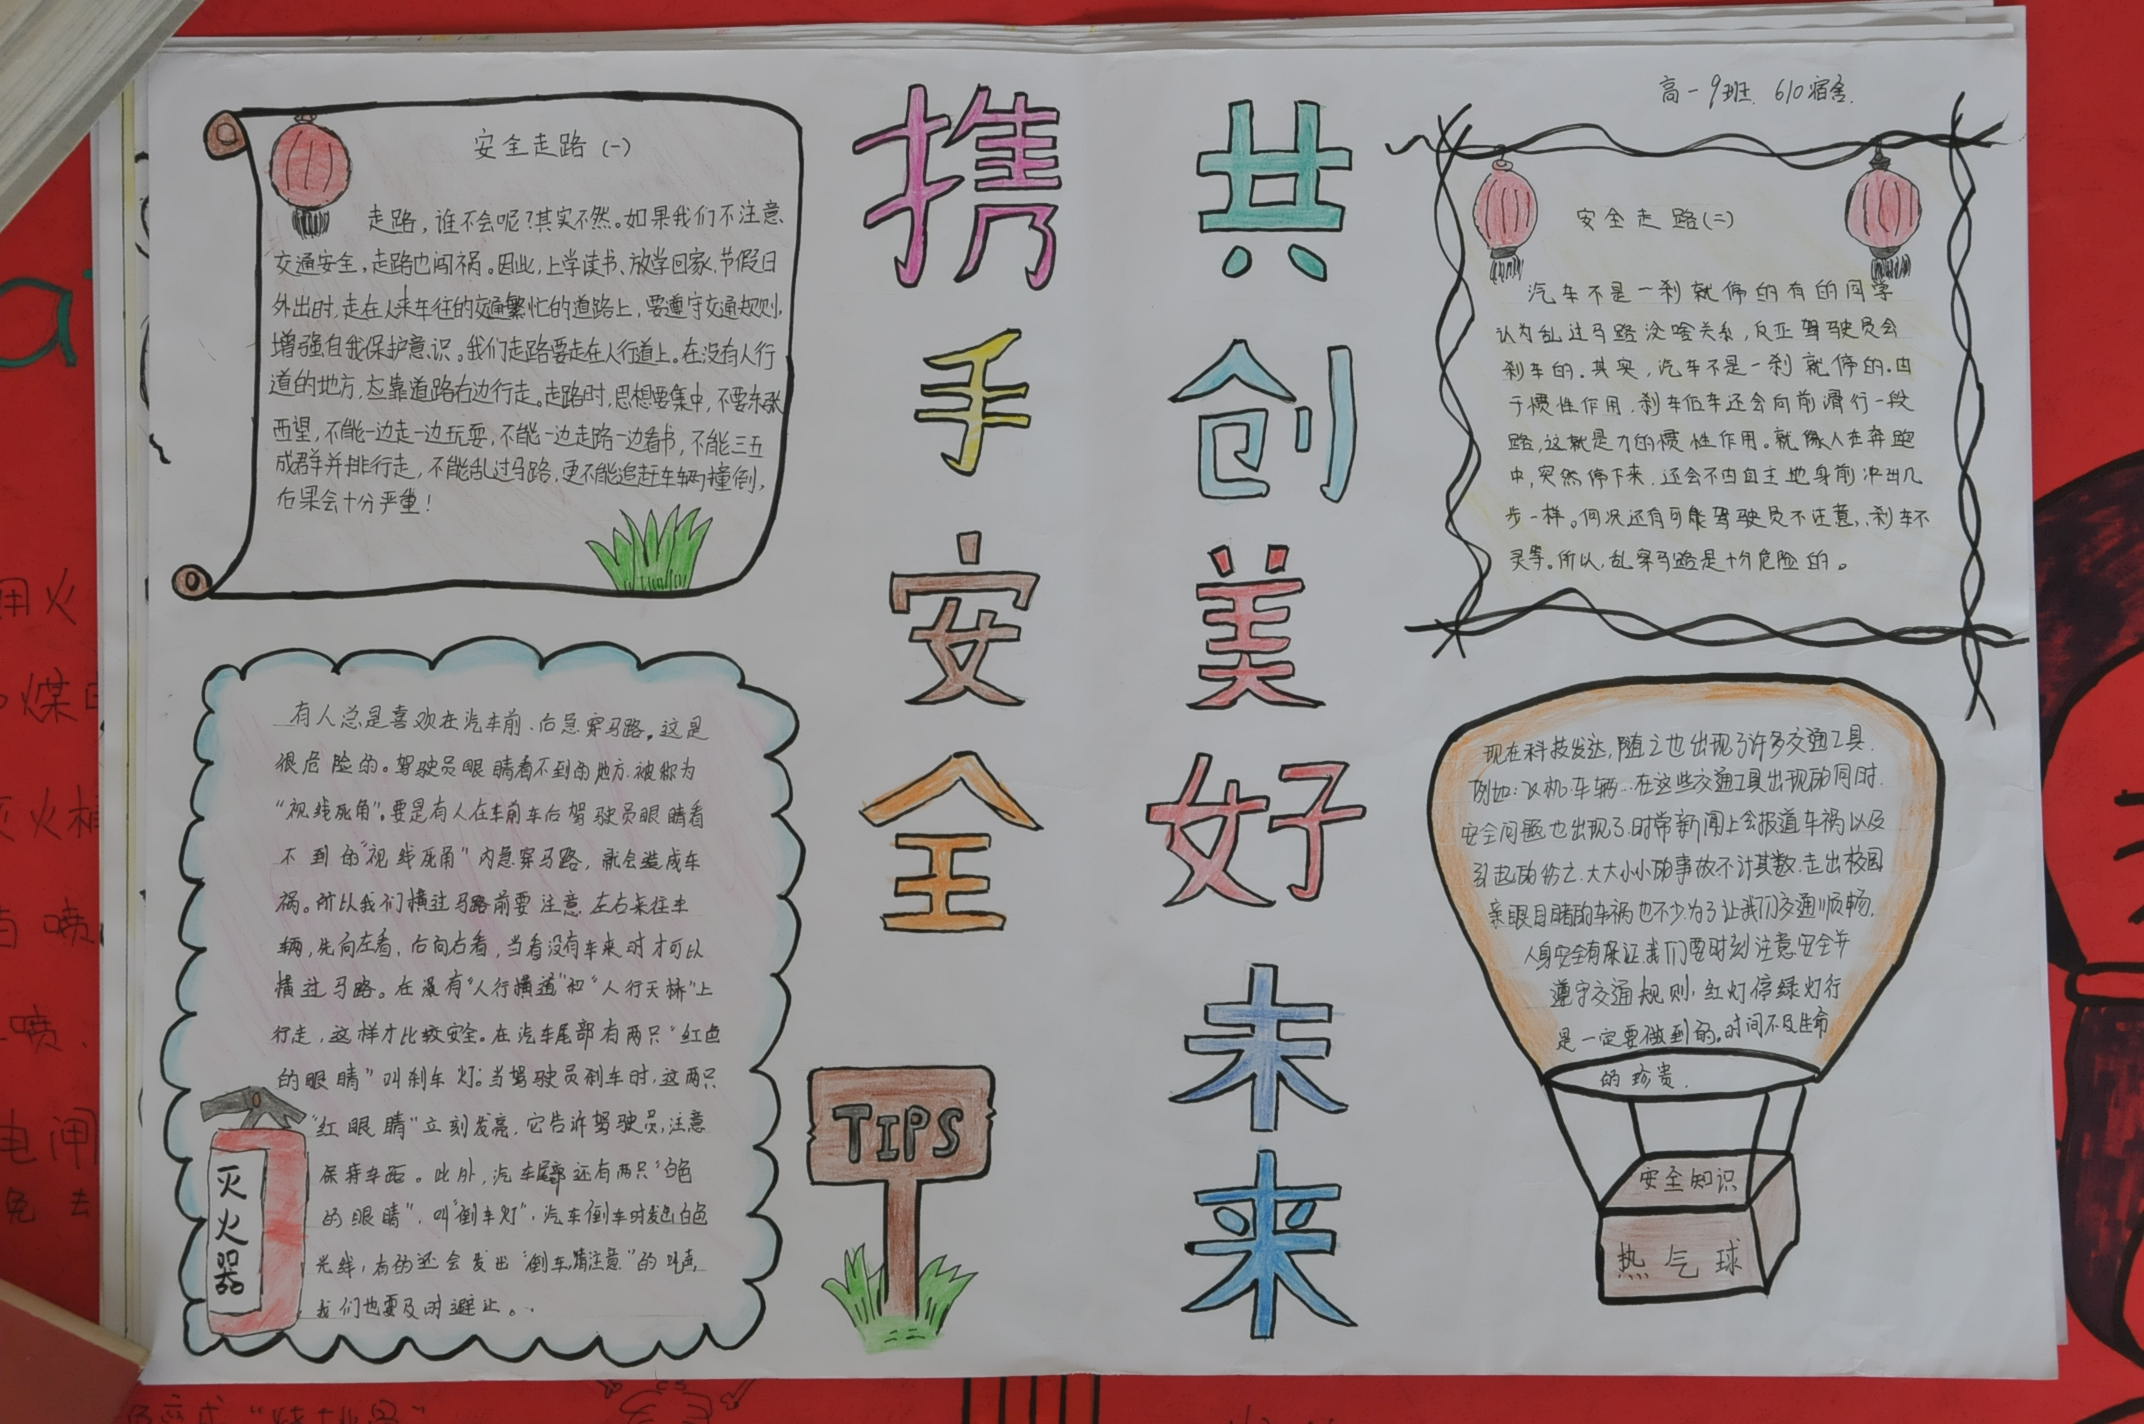 高一9班 610宿舍.
携手安全
共创美好未来
安全走路(一)
走路,谁不会呢?其实不然。如果我们不注意
交通安全,走路也闯祸。因此,上学读书、放学回家、节假日
外出时,走在人来车往的交通繁忙的道路上,要遵守交通规则,
增强自我保护意识。我们走路要走在人行道上。在没有人行
道的地方,应靠道路右边行走。走路时,思想要集中,不要东张
西望,不能一边走一边玩耍,不能一边走路一边看书,不能三五
成群并排行走,不能乱过马路,更不能追赶车辆撞倒,
后果会十分严重!
有人总是喜欢在汽车前、后急穿马路。这是
很危险的。驾驶员眼睛看不到的地方.被称为
“视线死角”。要是有人在车前车后驾驶员眼睛看
不到的“视线死角”内急穿马路,就会造成车
祸。所以我们横过马路前要注意左右来往车
辆,先向左看,后向右看,当看没有车来时才可以
横过马路。在没有“人行横道”和“人行天桥”上
行走,这样才比较安全。在汽车尾部有两只“红色
的眼睛”叫刹车灯;当驾驶员刹车时,这两只
“红眼睛”立刻发亮,它告诉驾驶员,注意
保持车距。此外,汽车尾部还有两只“白色
的眼睛”,叫“倒车灯”,汽车倒车时发出白色
光线,有的还会发出“倒车,请注意”的叫声,
我们也要及时避让。
灭火器
TIPS
安全走路(二)
汽车不是一刹就停的有的同学
认为乱过马路没啥关系,反正驾驶员会
刹车的.其实,汽车不是一刹就停的.由
于惯性作用,刹车后车还会向前滑行一段
路,这就是力的惯性作用。就像人在奔跑
中,突然停下来,还会不由自主地身前冲出几
步一样。何况还有可能驾驶员不注意,刹车不
灵等。所以,乱穿马路是十分危险的。
现在科技发达,随之也出现了许多交通工具.
例如:飞机.车辆...在这些交通工具出现的同时.
安全问题也出现了.时常新闻上会报道车祸以及
引起的伤亡.大大小小的事故不计其数.走出校园
亲眼目睹的车祸也不少.为了让我们交通顺畅.
人身安全有保证.我们要时刻注意安全并
遵守交通规则,红灯停绿灯行
是一定要做到的。时间不及生命
的珍贵.
安全知识
热气球